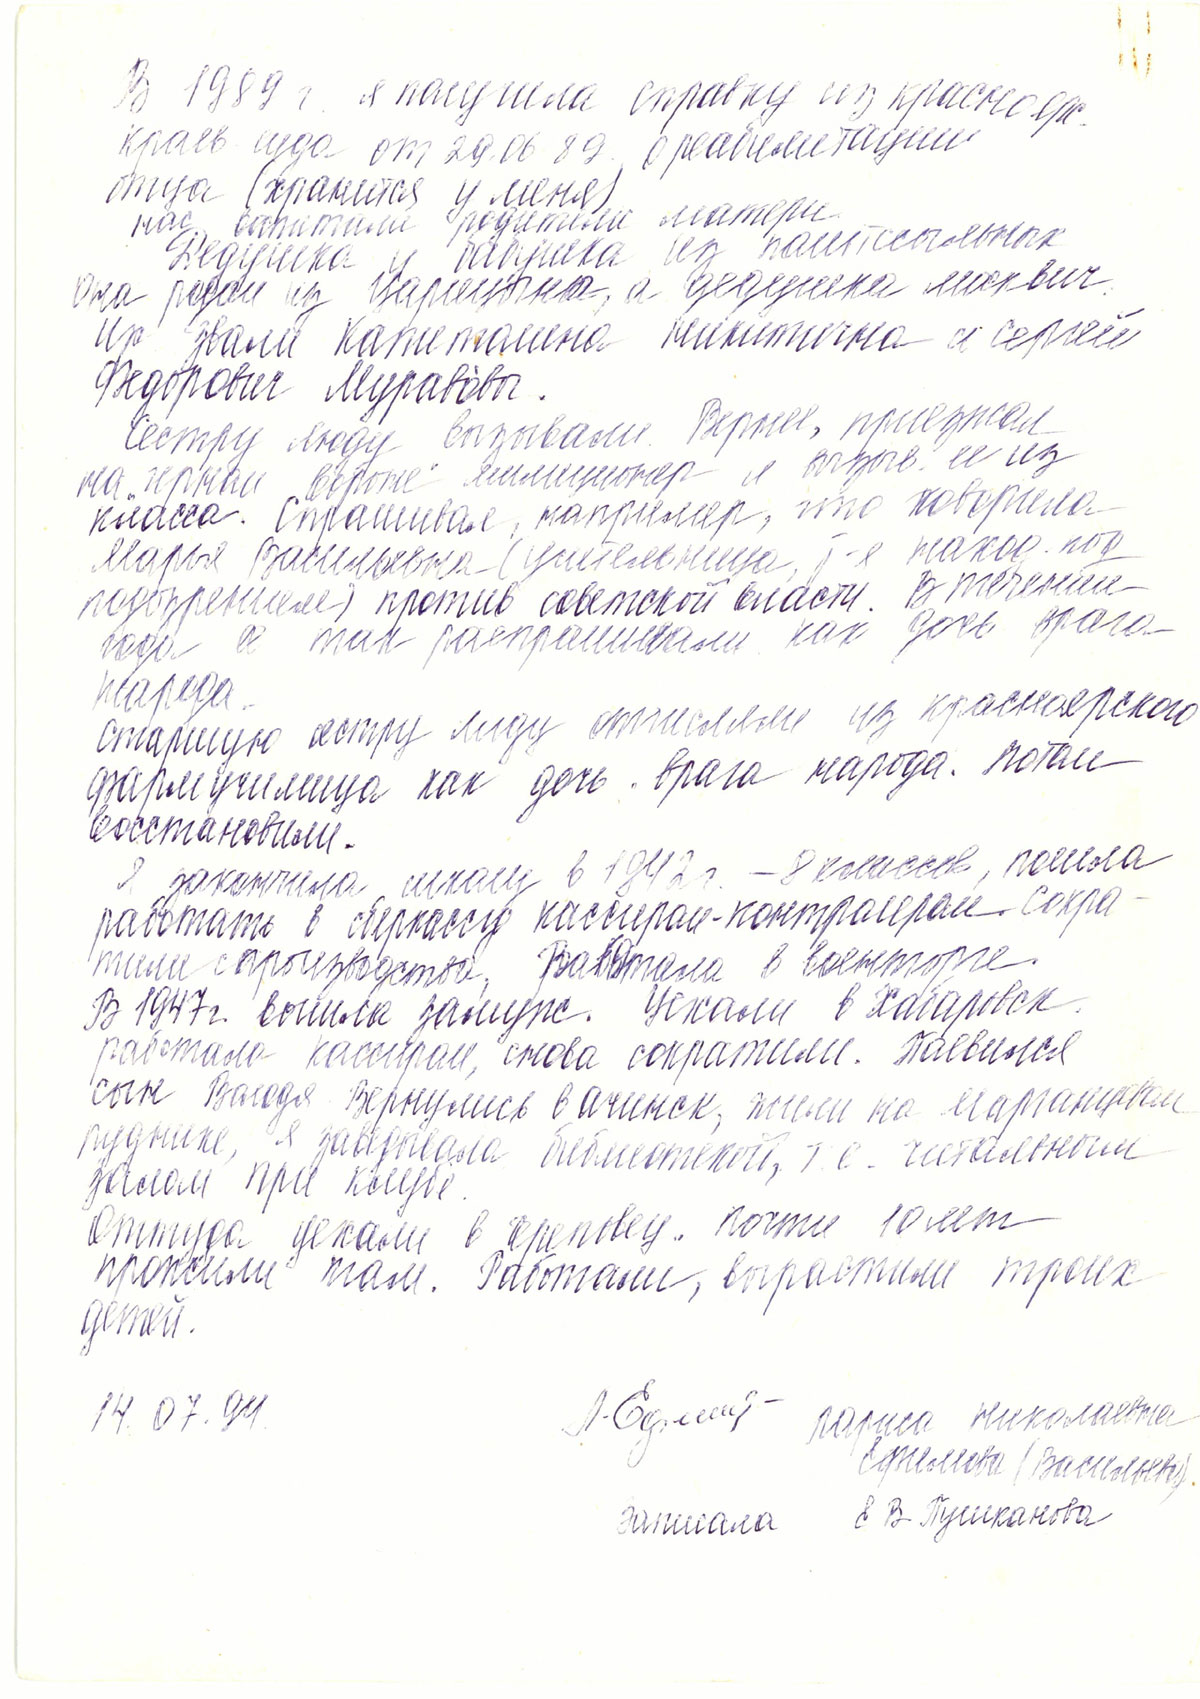 В 1989 г. я получила справку из краснояр.
краев. суда от 29.06.89. о реабилитации
отца (хранится у меня)
нас воспитали родители матери.
Дедушка и бабушка из политссыльных
Она родом из Царицына, а дедушка москвич.
Их звали Капиталина Никитична и Сергей
Федорович Муравьёвы.
Сестру Люду вызывали. Вернее, приезжал
на "черном вороне" милиционер и вызыв. ее из
класса. Спрашивал, например, что говорила
Марья Васильевна (учительница, к-я наход. под
подозрением) против советской власти. В течении
года её так расспрашивали как дочь врага
народа.
Старшую сестру Лиду отчислили из красноярского
фармучилища как дочь врага народа. Потом
восстановили.
Я закончила школу в 1942 г. – 8 классов, пошла
работать в сберкассу кассиром-контролером. Сокра-
тили с производства. Работала в военторге.
В 1947 г. вышла замуж. Уехали в Хабаровск.
работала кассиром, снова сократили. Появился
сын Володя. Вернулись в Ачинск, жили на марганцовом
руднике, я заведовала библиотекой, т.е. читальным
залом при клубе.
Оттуда уехали в Череповец. Почти 10 лет
прожили там. Работали, вырастили троих
детей.
14.07.94. Л. Ефим Лариса Николаевна
Ефимова (Васильева).
Записала Е В Пушканова